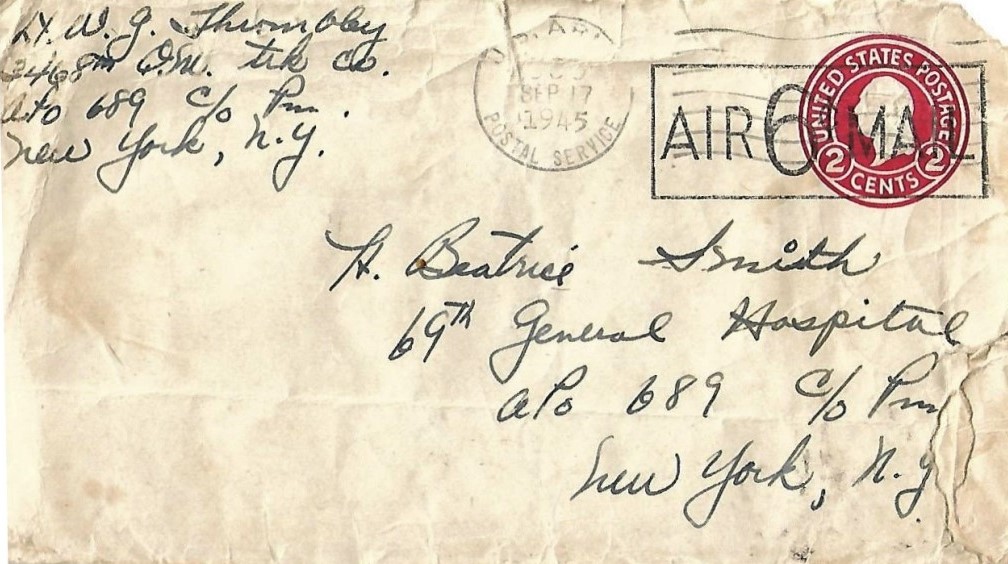 Lt. W. G. Thrombley
3468th Q.M. trk Co.
APO 689 c/o Pm.
New York, N.Y.
U.S. ARMY
SEP 17
1945
POSTAL SERVICE
AIR 6¢ MAIL
UNITED STATES POSTAGE
2 2
CENTS
Lt. Beatrice Smith
69th General Hospital
APO 689 c/o Pm
New York, N.Y